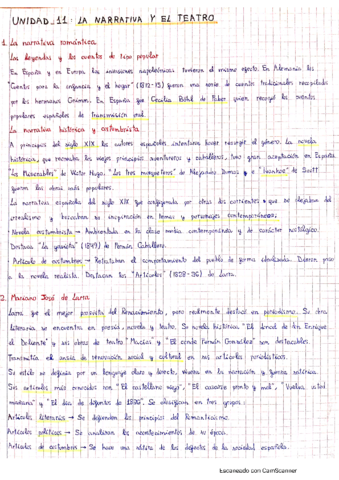 UNIDAD 11: LA NARRATIVA Y EL TEATRO
1. La narrativa romántica.
Las leyendas y los cuentos de tipo popular
En España y en Europa las invasiones napoleónicas tuvieron el mismo efecto. En Alemania los
"Cuentos para la infancia y el hogar" (1812-15) fueron una serie de cuentos tradicionales recopilados
por los hermanos Grimm. En España fue Cecilia Böhl de Faber quien recogió los cuentos
populares españoles de transmisión oral.
La narrativa histórica y costumbrista
A principios del siglo XIX, los autores españoles intentaron hacer resurgir el género. La novela
histórica, que recreaba los viejos principios aventureros y caballeros, tuvo gran aceptación en España.
"Los Miserables" de Victor Hugo, "Los tres mosqueteros" de Alejandro Dumas e "Ivanhoe" de Scott
fueron las obras más populares.
La narrativa española del siglo XIX fue configurada por otras dos corrientes que se alejaban del
y buscaban su inspiración en temas y personajes contemporáneos:
Novela costumbrista → Ambientada en la clase media contemporánea y de carácter nostálgico.
Destaca "La gaviota" (1849) de Fernán Caballero.
Artículo de costumbres → Retrataban el comportamiento del pueblo de forma idealizada. Dieron paso
a la novela realista. Destacan los "Artículos" (1828-36) de Larra.
2. Mariano José de Larra
Larra fue el mejor prosista del Romanticismo, pero realmente destacó en periodismo. Su obra
literaria se encuentra en poesía, novela y teatro. Su novela histórica "El doncel de don Enrique
el Doliente" y sus obras de teatro "Macías" y "El conde Fernán González" son destacables.
Transmitía el ansia de renovación social y cultural en sus artículos periodísticos.
Su estilo se definía por un lenguaje claro y directo, viveza en la narración y fuerza satírica.
Sus artículos más conocidos son "El castellano viejo", "El casarse pronto y mal", "Vuelva usted
mañana" y "El día de difuntos de 1836". Se clasifican en tres grupos:
Artículos literarios → Se defienden los principios del Romanticismo.
Artículos políticos → Se analizan los acontecimientos de su época.
Artículos de costumbres → Se hace una crítica de los defectos de la sociedad española.
Escaneado con CamScanner